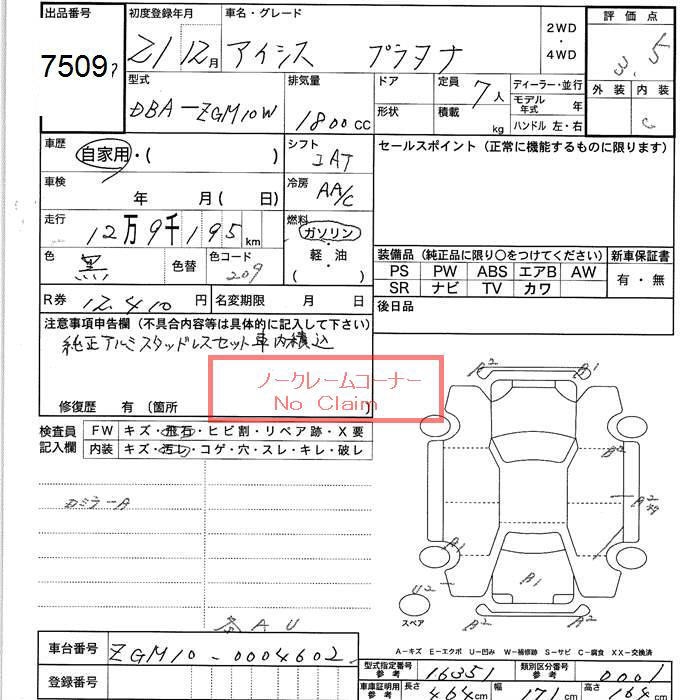 出品番号 初度登録年月 車名・グレード 2WD・4WD 評価点
7509 21 12月 アイシス プラタナ 3.5
型式 排気量 ドア 定員 7人 ディーラー・並行 外装 内装
DBA-ZGM10W 1800cc 形状 積載 kg モデル年式 年 C
ハンドル 左・右
車歴 自家用・( ) シフト IAT セールスポイント（正常に機能するものに限ります）
車検 年 月 ( 日) 冷房 AA/C
走行 12万9千195km 燃料 ガソリン・軽・油 ( )
色 黒 色替 色コード 209
装備品（純正品に限り○をつけてください） 新車保証書
PS PW ABS エアB AW 有・無
SR ナビ TV カワ
R券 12,410円 名変期限 月 日 後日品
注意事項申告欄（不具合内容等は具体的に記入して下さい）
純正アルミスタッドレスセット車内積込
ノークレームコーナー
No Claim
修復歴 有〔箇所 〕
検査員記入欄 FW キズ・飛石・ヒビ割・リペア跡・X要
内装 キズ・汚レ・コゲ・穴・スレ・キレ・破レ
A2 B1
B2
A2
A1
U2
B1
B2 B2
スペア
各AU
A-キズ E-エクボ U-凹み W-補修跡 S-サビ C-腐食 XX-交換済
車台番号 ZGM10-0004602
登録番号
型式指定番号 参考 16351 類別区分番号 参考 0001
車庫証明用 参考 長さ 464cm 幅 171cm 高さ 164cm